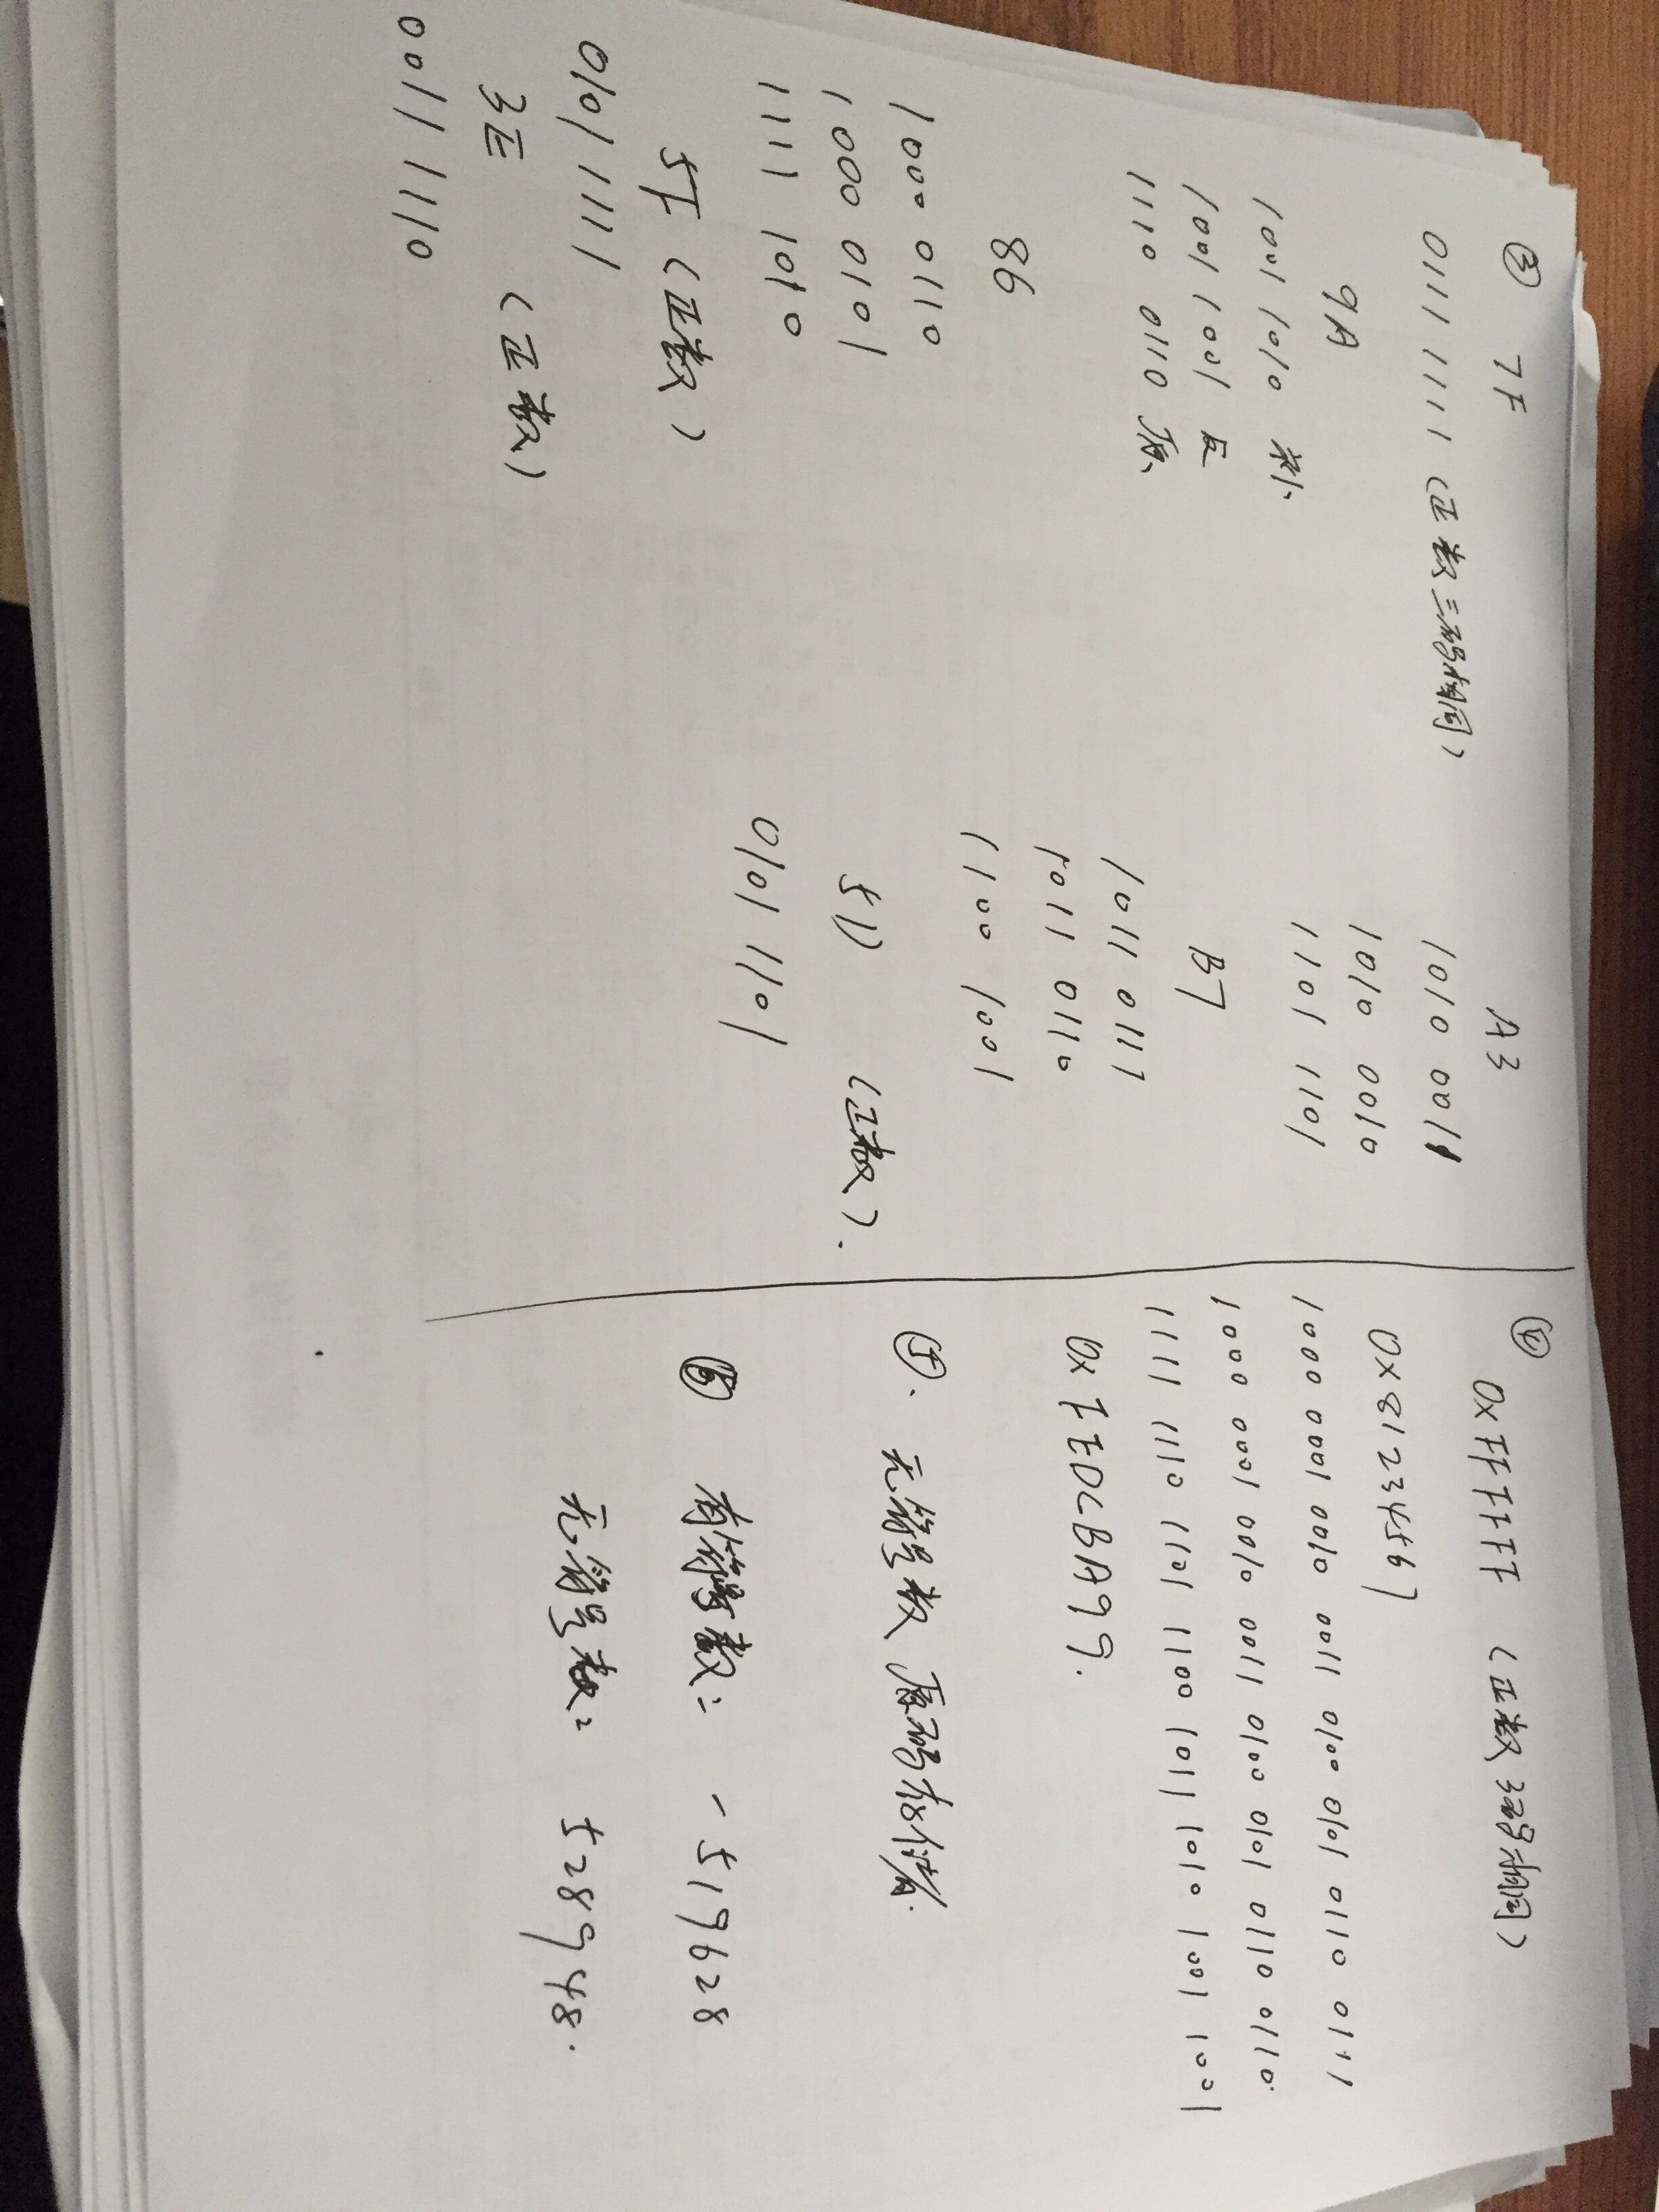 ③ 7F
0111 1111 (正数三码相同)
9A
1001 1010 补
1001 1001 反
1110 0110 原
86
1000 0110
1000 0101
1111 1010
5F (正数)
0101 1111
3E (正数)
0011 1110
A3
1010 0011
1010 0010
1101 1101
B7
1011 0111
1011 0110
1100 1001
5D (正数).
0101 1101
④ 0x FFFFF (正数三码相同)
0x81234567
1000 0001 0010 0011 0100 0101 0110 0111
1000 0001 0010 0011 0100 0101 0110 0110
1111 1110 1101 1100 1011 1010 1001 1001
0x FEDCBA99.
⑤. 无符号数 原码存储.
⑥ 有符号数: -519628
无符号数: 528948.